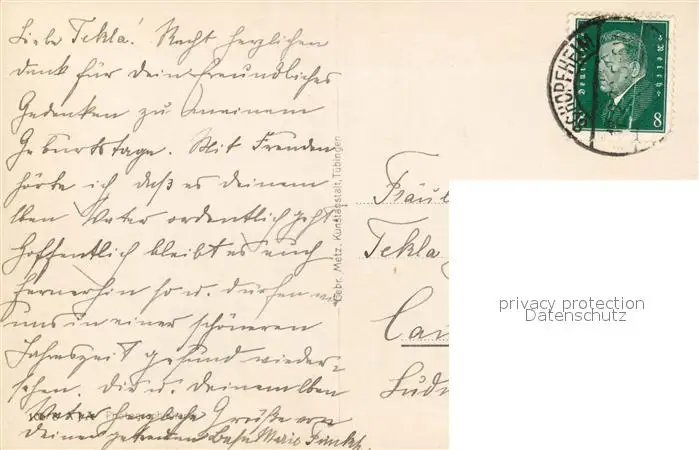 Liebe Tekla! Recht herzlichen
dank für dein freundliches
Gedenken zu meinem
Geburtstage. Mit Freuden
hörte ich daß es deinem
lben Vater ordentlich geht
hoffentlich bleibt es euch
fernerhin so u. dürfen wir
uns in einer schöneren
Jahreszeit gesund wieder-
sehen. dir u. deinem lben
Vater herzliche Grüße von
deiner getreuen Base Marie
Gebr. Metz, Kunstanstalt, Tübingen
SCHOPFHEIM
Deutsches Reich
8
Fräul
Tekla
Lud
privacy protection
Datenschutz